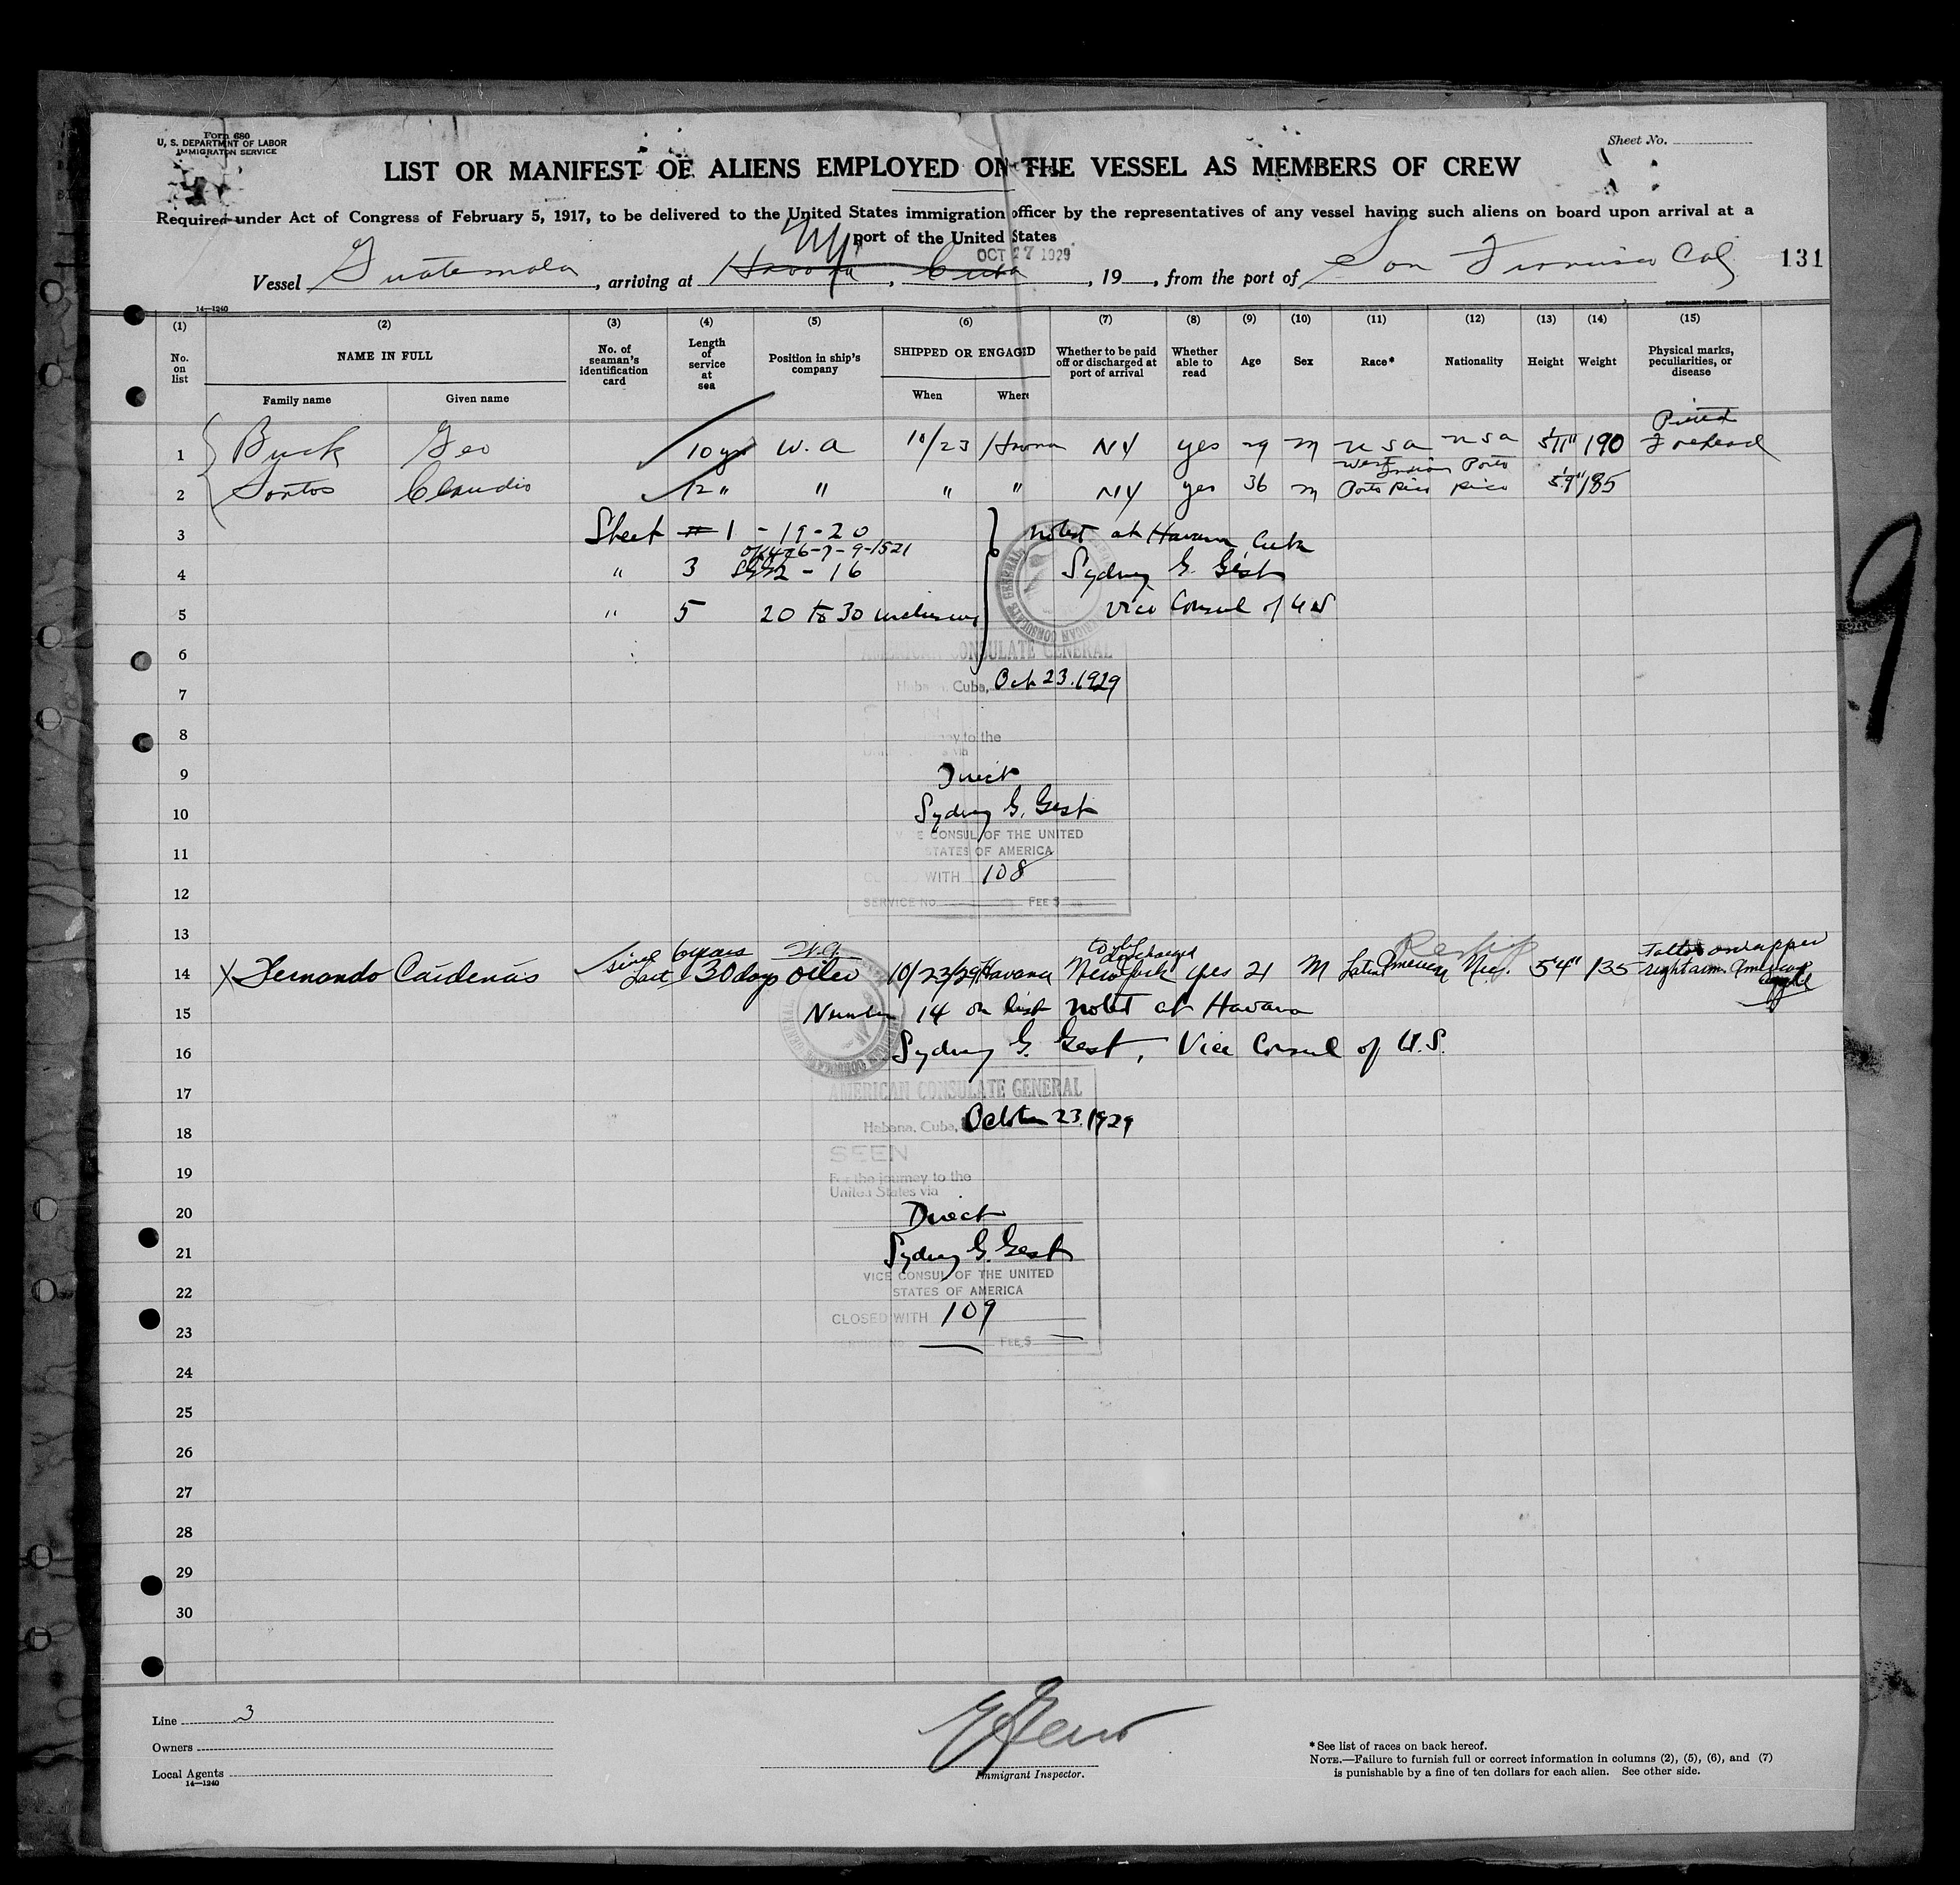 Form 680
U. S. DEPARTMENT OF LABOR
IMMIGRATION SERVICE
Sheet No.
LIST OR MANIFEST OF ALIENS EMPLOYED ON THE VESSEL AS MEMBERS OF CREW
Required under Act of Congress of February 5, 1917, to be delivered to the United States immigration officer by the representatives of any vessel having such aliens on board upon arrival at a
port of the United States
OCT 27 1929
Vessel Guatemala, arriving at Havana, Cuba, 19, from the port of San Francisco Cal 131
14—1240
(1) (2) (3) (4) (5) (6) (7) (8) (9) (10) (11) (12) (13) (14) (15)
No. on list
NAME IN FULL
Family name
Given name
No. of seaman's identification card
Length of service at sea
Position in ship's company
SHIPPED OR ENGAGED
When
Where
Whether to be paid off or discharged at port of arrival
Whether able to read
Age
Sex
Race*
Nationality
Height
Weight
Physical marks, peculiarities, or disease
1 Buck Geo 10 yrs W. A 10/23 Havana NY yes 29 M U S A U S A 5'11" 190 Pitted Forehead
2 Santos Claudio 12 " " " " NY yes 36 M West Indian Porto Rico Porto Rico 5'9" 185
3 Sheet # 1 - 19-20 noted at Havana, Cuba
4 " 3 2 - 16 Sydney G. Gest
5 " 5 20 to 30 inclusive Vice Consul of US
6 AMERICAN CONSULATE GENERAL
7 Habana, Cuba, Oct 23. 1929
8 y to the
via
9 Direct
10 Sydney G. Gest
VICE CONSUL OF THE UNITED
11 STATES OF AMERICA
CLOSED WITH 108
12 SERVICE NO. FEE $
13
14 X Fernando Cardenas since last 6 years 30 days W.A. oiler 10/23/29 Havana to be discharged New York yes 21 M Latin American Nic. 5'4" 135 Reship Tattoo on upper right arm. American eagle
15 Number 14 on list noted at Havana
16 Sydney G. Gest, Vice Consul of U.S.
17 AMERICAN CONSULATE GENERAL
18 Habana, Cuba, October 23, 1929
SEEN
19 For the journey to the
United States via
20 Direct
21 Sydney G. Gest
VICE CONSUL OF THE UNITED
22 STATES OF AMERICA
CLOSED WITH 109
23 SERVICE NO. FEE $
24
25
26
27
28
29
30
Line 3
Owners
Local Agents
14—1240
Immigrant Inspector.
*See list of races on back hereof.
NOTE.—Failure to furnish full or correct information in columns (2), (5), (6), and (7)
is punishable by a fine of ten dollars for each alien. See other side.
9